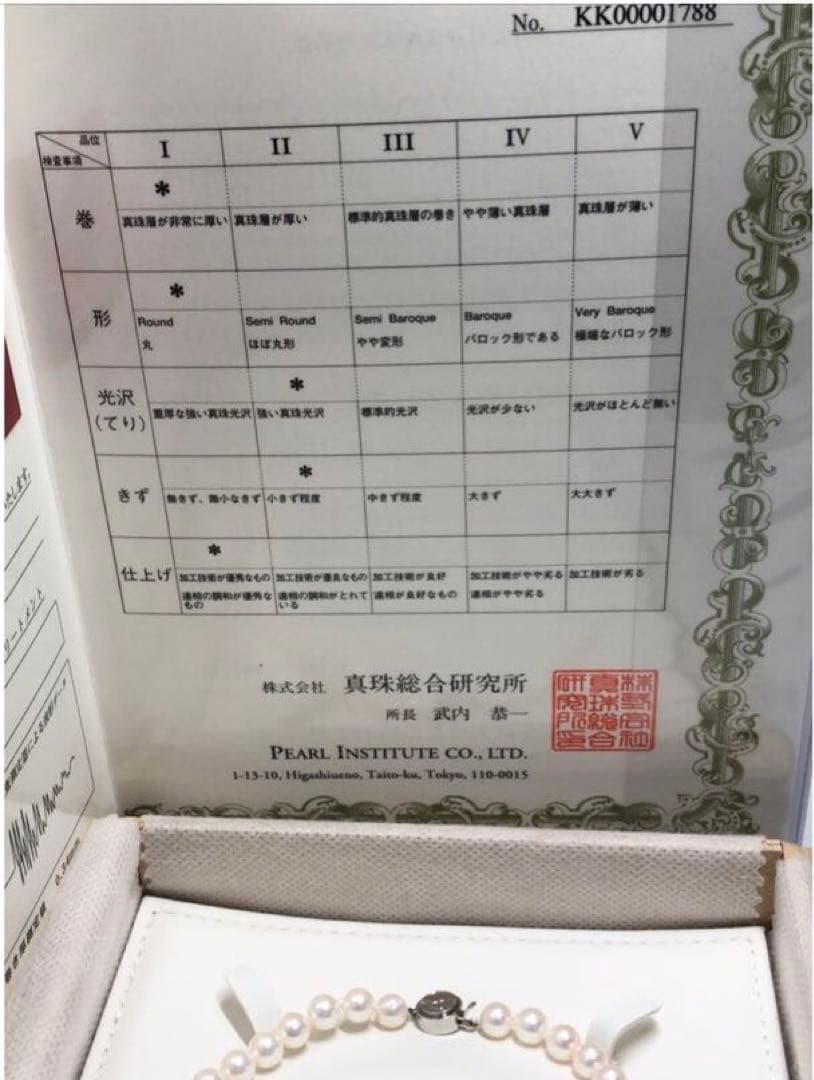 No. KK00001788
品位
検査事項
I II III IV V
巻
* 
真珠層が非常に厚い 真珠層が厚い 標準的真珠層の巻き やや薄い真珠層 真珠層が薄い
形
*
Round Semi Round Semi Baroque Baroque Very Baroque
丸 ほぼ丸形 やや変形 バロック形である 極端なバロック形
光沢
(てり)
*
重厚な強い真珠光沢 強い真珠光沢 標準的光沢 光沢が少ない 光沢がほとんど無い
きず
*
無きず、微小なきず 小きず程度 中きず程度 大きず 大大きず
仕上げ
*
加工技術が優秀なもの 加工技術が優良なもの 加工技術が良好 加工技術がやや劣る 加工技術が劣る
連相の調和が優秀な 連相の調和がとれて 連相が良好なもの 連相がやや劣る
もの いる
株式会社 真珠総合研究所
所長 武内 恭一
株式会社
真珠総合
研究所之印
PEARL INSTITUTE CO., LTD.
1-13-10, Higashiueno, Taito-ku, Tokyo, 110-0015
いたします。
リートメント